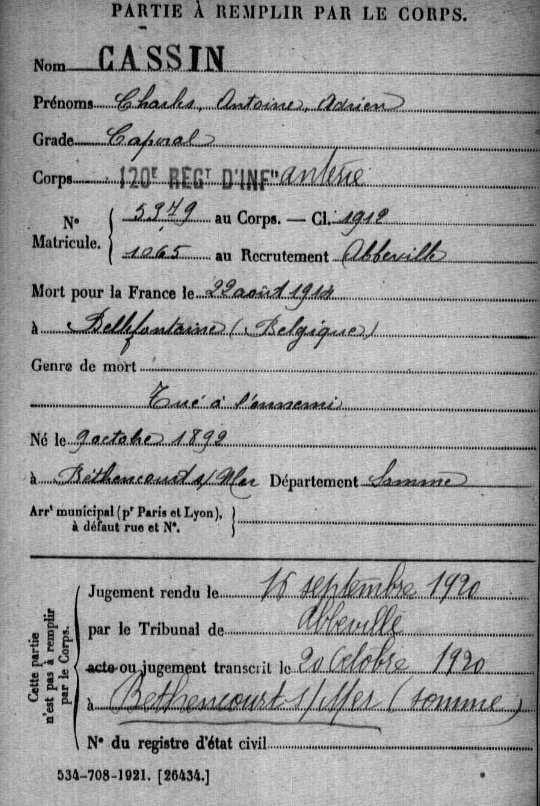 PARTIE À REMPLIR PAR LE CORPS.
Nom CASSIN
Prénoms Charles, Antoine, Adrien
Grade Caporal
Corps 120E REGT D'INFie anterie
N° Matricule. 5979 au Corps. — Cl. 1912
1065 au Recrutement Abbeville
Mort pour la France le 22 août 1914
à Bellefontaine (Belgique)
Genre de mort
Tué à l'ennemi
Né le 9 octobre 1892
à Béthencourt s/ Mer Département Somme
Arrt municipal (pr Paris et Lyon),
à défaut rue et N°.
Cette partie n'est pas à remplir par le Corps.
Jugement rendu le 16 septembre 1920
par le Tribunal de Abbeville
acte ou jugement transcrit le 20 Octobre 1920
à Bethencourt s/ Mer (Somme)
N° du registre d'état civil
534-708-1921. [26434.]